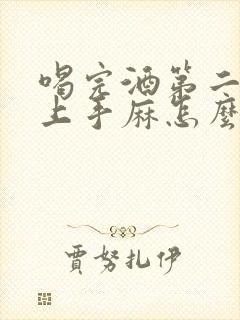 喝完酒第二
上手麻怎麼
賈努扎伊